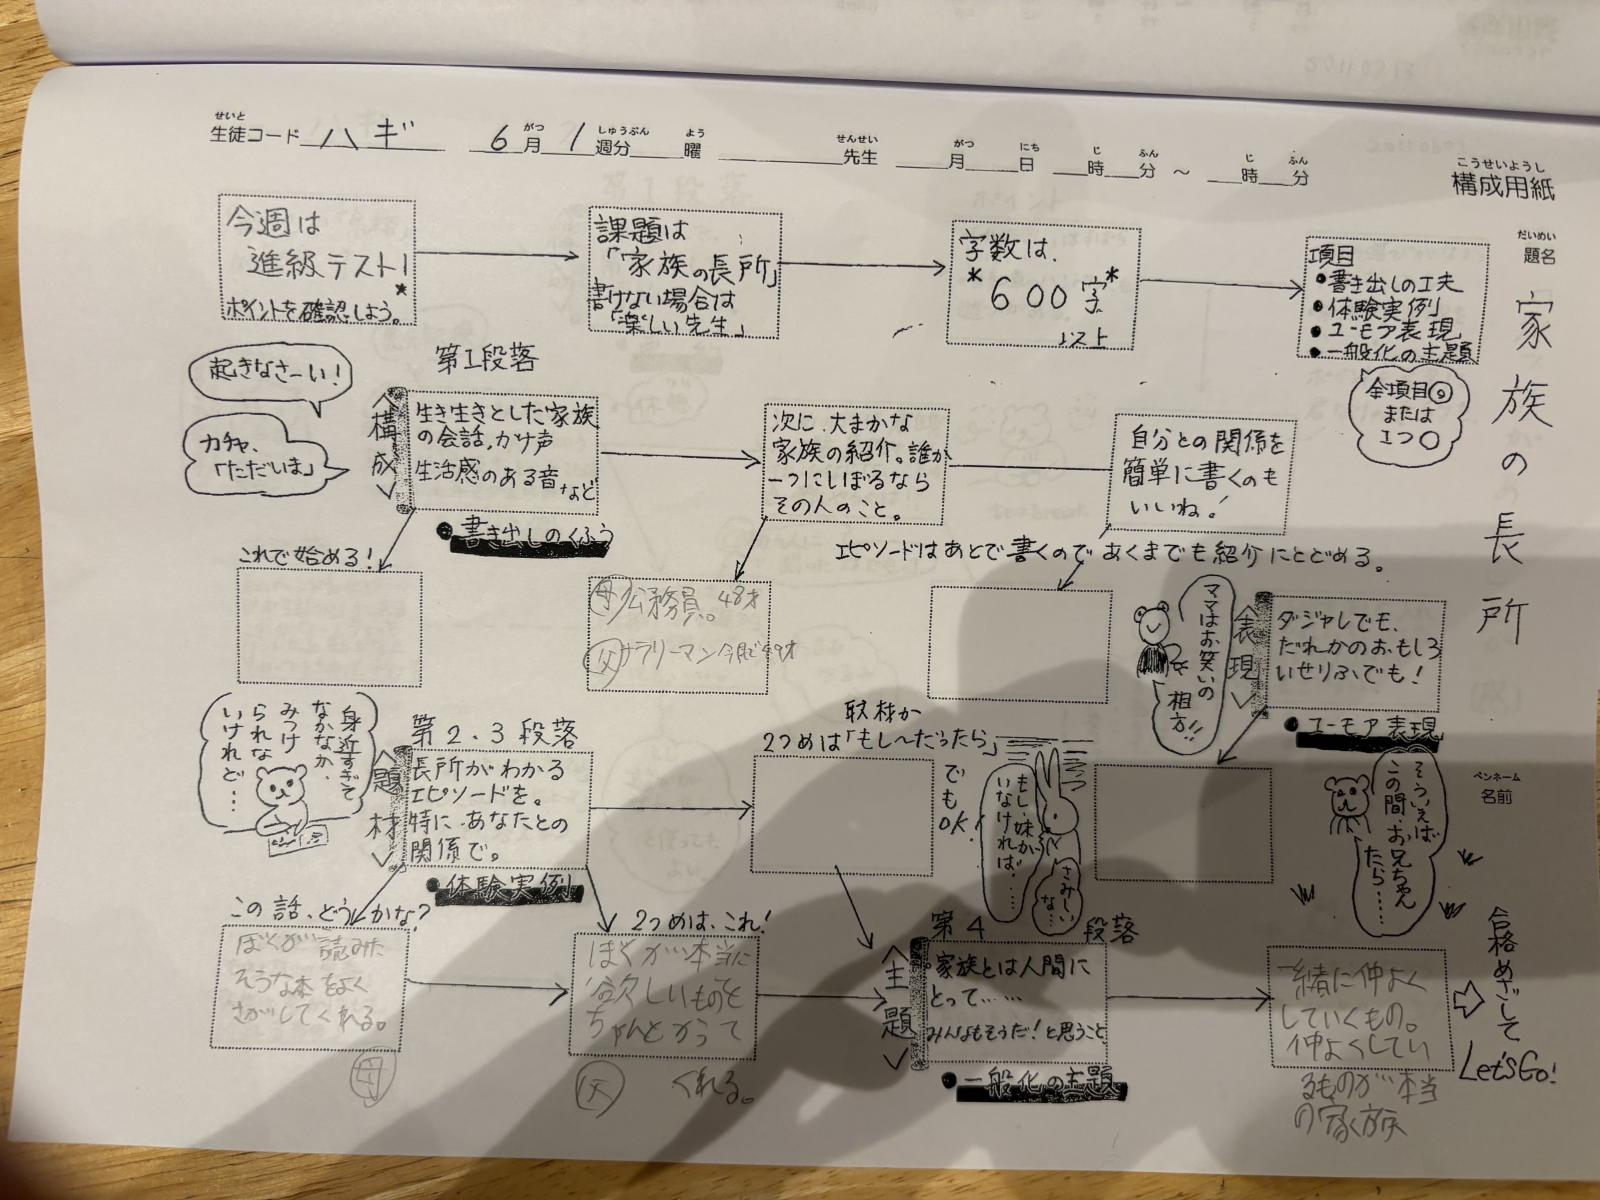 せいと
生徒コード ハギ
がつ しゅうぶん よう
6月1週分 曜
せんせい
先生
がつ にち じ ふん じ ふん
月 日 時 分 ～ 時 分
こうせいようし
構成用紙
だいめい
題名
家族の長所
今週は
進級テスト!
ポイントを確認しよう。
課題は
「家族の長所」
書けない場合は
「楽しい先生」
字数は、
*600字*
以上
項目
●書き出しの工夫
●体験実例
●ユーモア表現
●一般化の主題
全項目◎
または
1つ○
起きなさーい!
カチャ、
「ただいま」
第1段落
<構成>
生き生きとした家族
の会話、かけ声
生活感のある音など
●書き出しのくふう
次に、大まかな
家族の紹介。誰か
一つにしぼるなら
その人のこと。
自分との関係を
簡単に書くのも
いいね!
エピソードはあとで書くので あくまでも紹介にとどめる。
これで始める!
母 公務員。48才
父 サラリーマン 今月で49才
ママはお笑いの
相方!!
<表現>
ダジャレでも、
だれかのおもしろ
いせりふでも!
●ユーモア表現
身近すぎて
なかなか、
みつけ
られな
いけれど…
第2.3段落
<題材>
長所がわかる
エピソードを。
特に、あなたとの
関係で。
●体験実例
取材か
2つめは「もし〜だったら」
でも
OK!
もし、妹が
いなければ……
さみしい
な…
そういえば
この間、お兄ちゃん
たら……
ペンネーム
名前
この話、どうかな?
ぼくが読みた
そうな本をよく
さがしてくれる。
母
2つめは、これ!
ぼくが本当に
欲しいものを
ちゃんとかって
くれる。
父
第4段落
<主題>
家族とは人間に
とって……
みんなもそうだ!と思うこと
●一般化の主題
一緒に仲よく
していくもの。
仲よくしてい
るものが本当
の家族
合格めざして
Let'sGo!